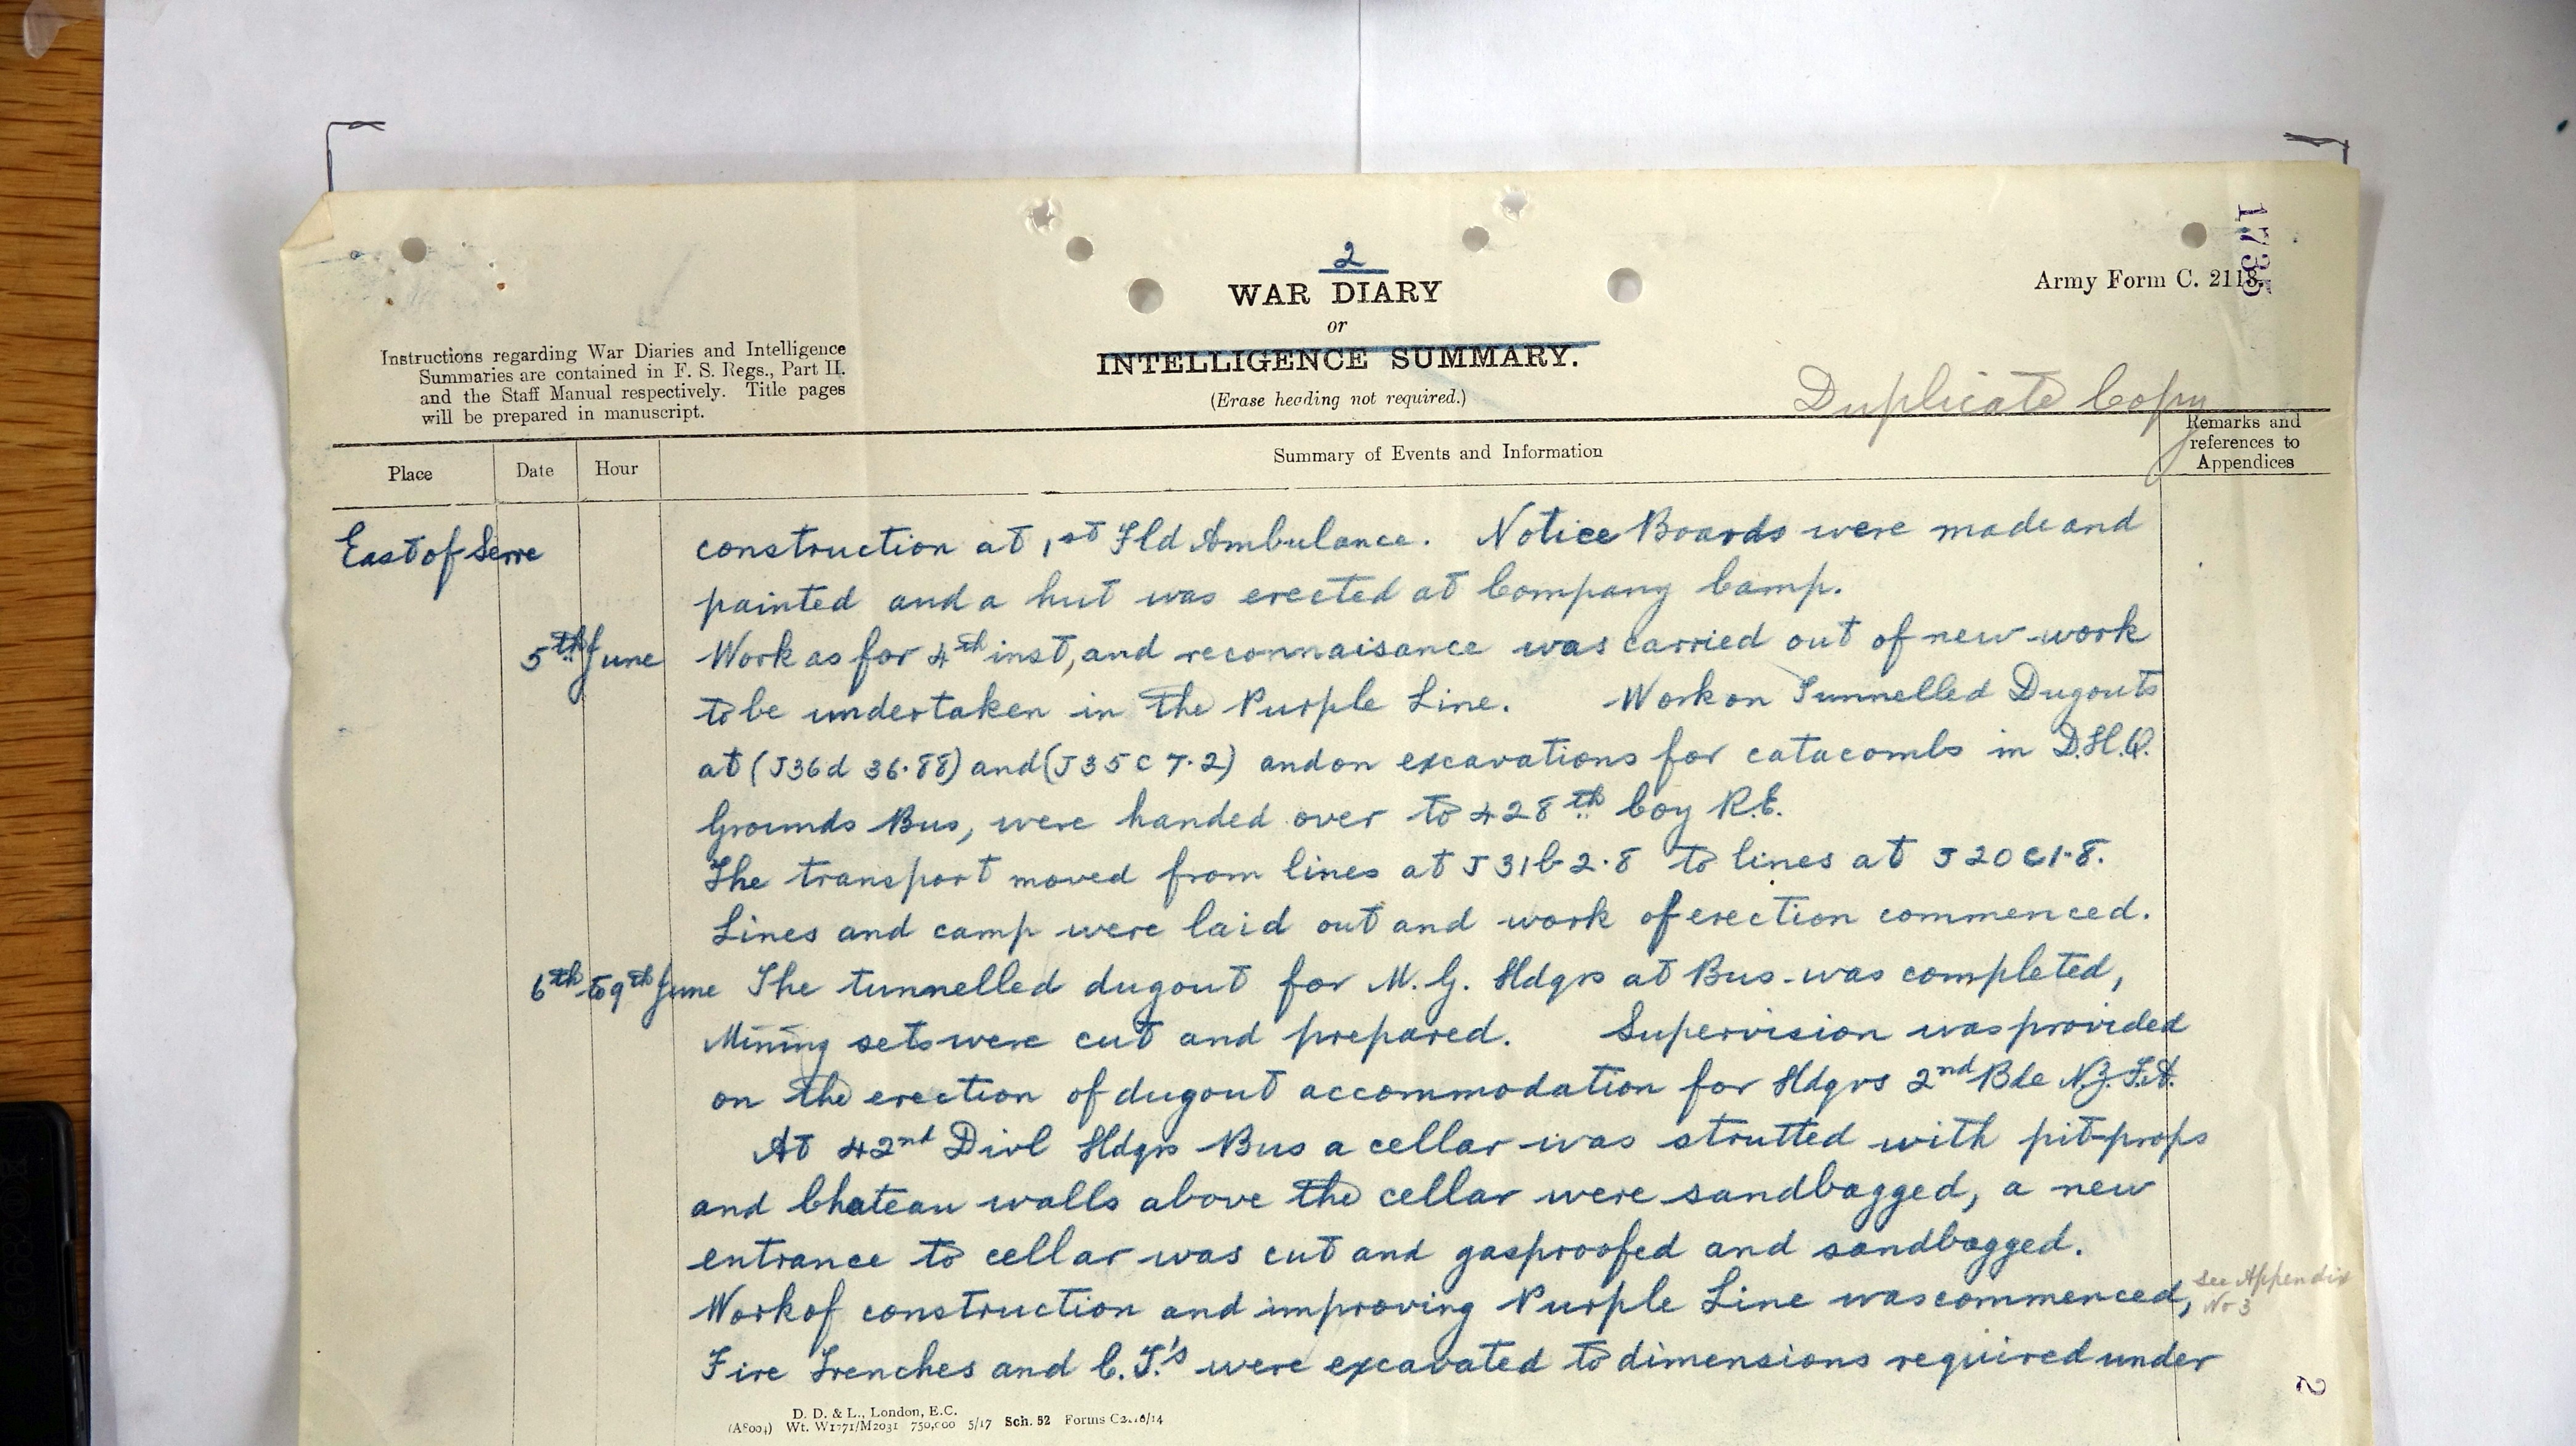 2
WAR DIARY
or
INTELLIGENCE SUMMARY.
(Erase heading not required.)
Army Form C. 2118.
1735
Instructions regarding War Diaries and Intelligence
Summaries are contained in F. S. Regs., Part II.
and the Staff Manual respectively. Title pages
will be prepared in manuscript.
Duplicate Copy
Place Date Hour Summary of Events and Information Remarks and
references to
Appendices
East of Serre construction at 1st Fld Ambulance. Notice Boards were made and
painted and a hut was erected at Company Camp.
5th June Work as for 4th inst, and reconnaisance was carried out of new work
to be undertaken in the Purple Line. Work on Tunnelled Dugouts
at (J36d 36.88) and (J35c 7.2) and on excavations for catacombs in D.H.Q.
Grounds Bus, were handed over to 428th Coy R.E.
The transport moved from lines at J31b 2.8 to lines at J20c1.8.
Lines and camp were laid out and work of erection commenced.
6th to 9th June The tunnelled dugout for M.G. Hdqrs at Bus was completed,
Mining sets were cut and prepared. Supervision was provided
on the erection of dugout accommodation for Hdqrs 2nd Bde N.Z.F.A.
At 42nd Divl Hdqrs Bus a cellar was strutted with pit-props
and Chateau walls above the cellar were sandbagged, a new
entrance to cellar was cut and gasproofed and sandbagged.
Work of construction and improving Purple Line was commenced, See Appendix
No 3
Fire Trenches and C.T.'s were excavated to dimensions required under
2
D. D. & L., London, E.C.
(A8004) Wt. W1771/M2031 750,000 5/17 Sch. 52 Forms C2118/14